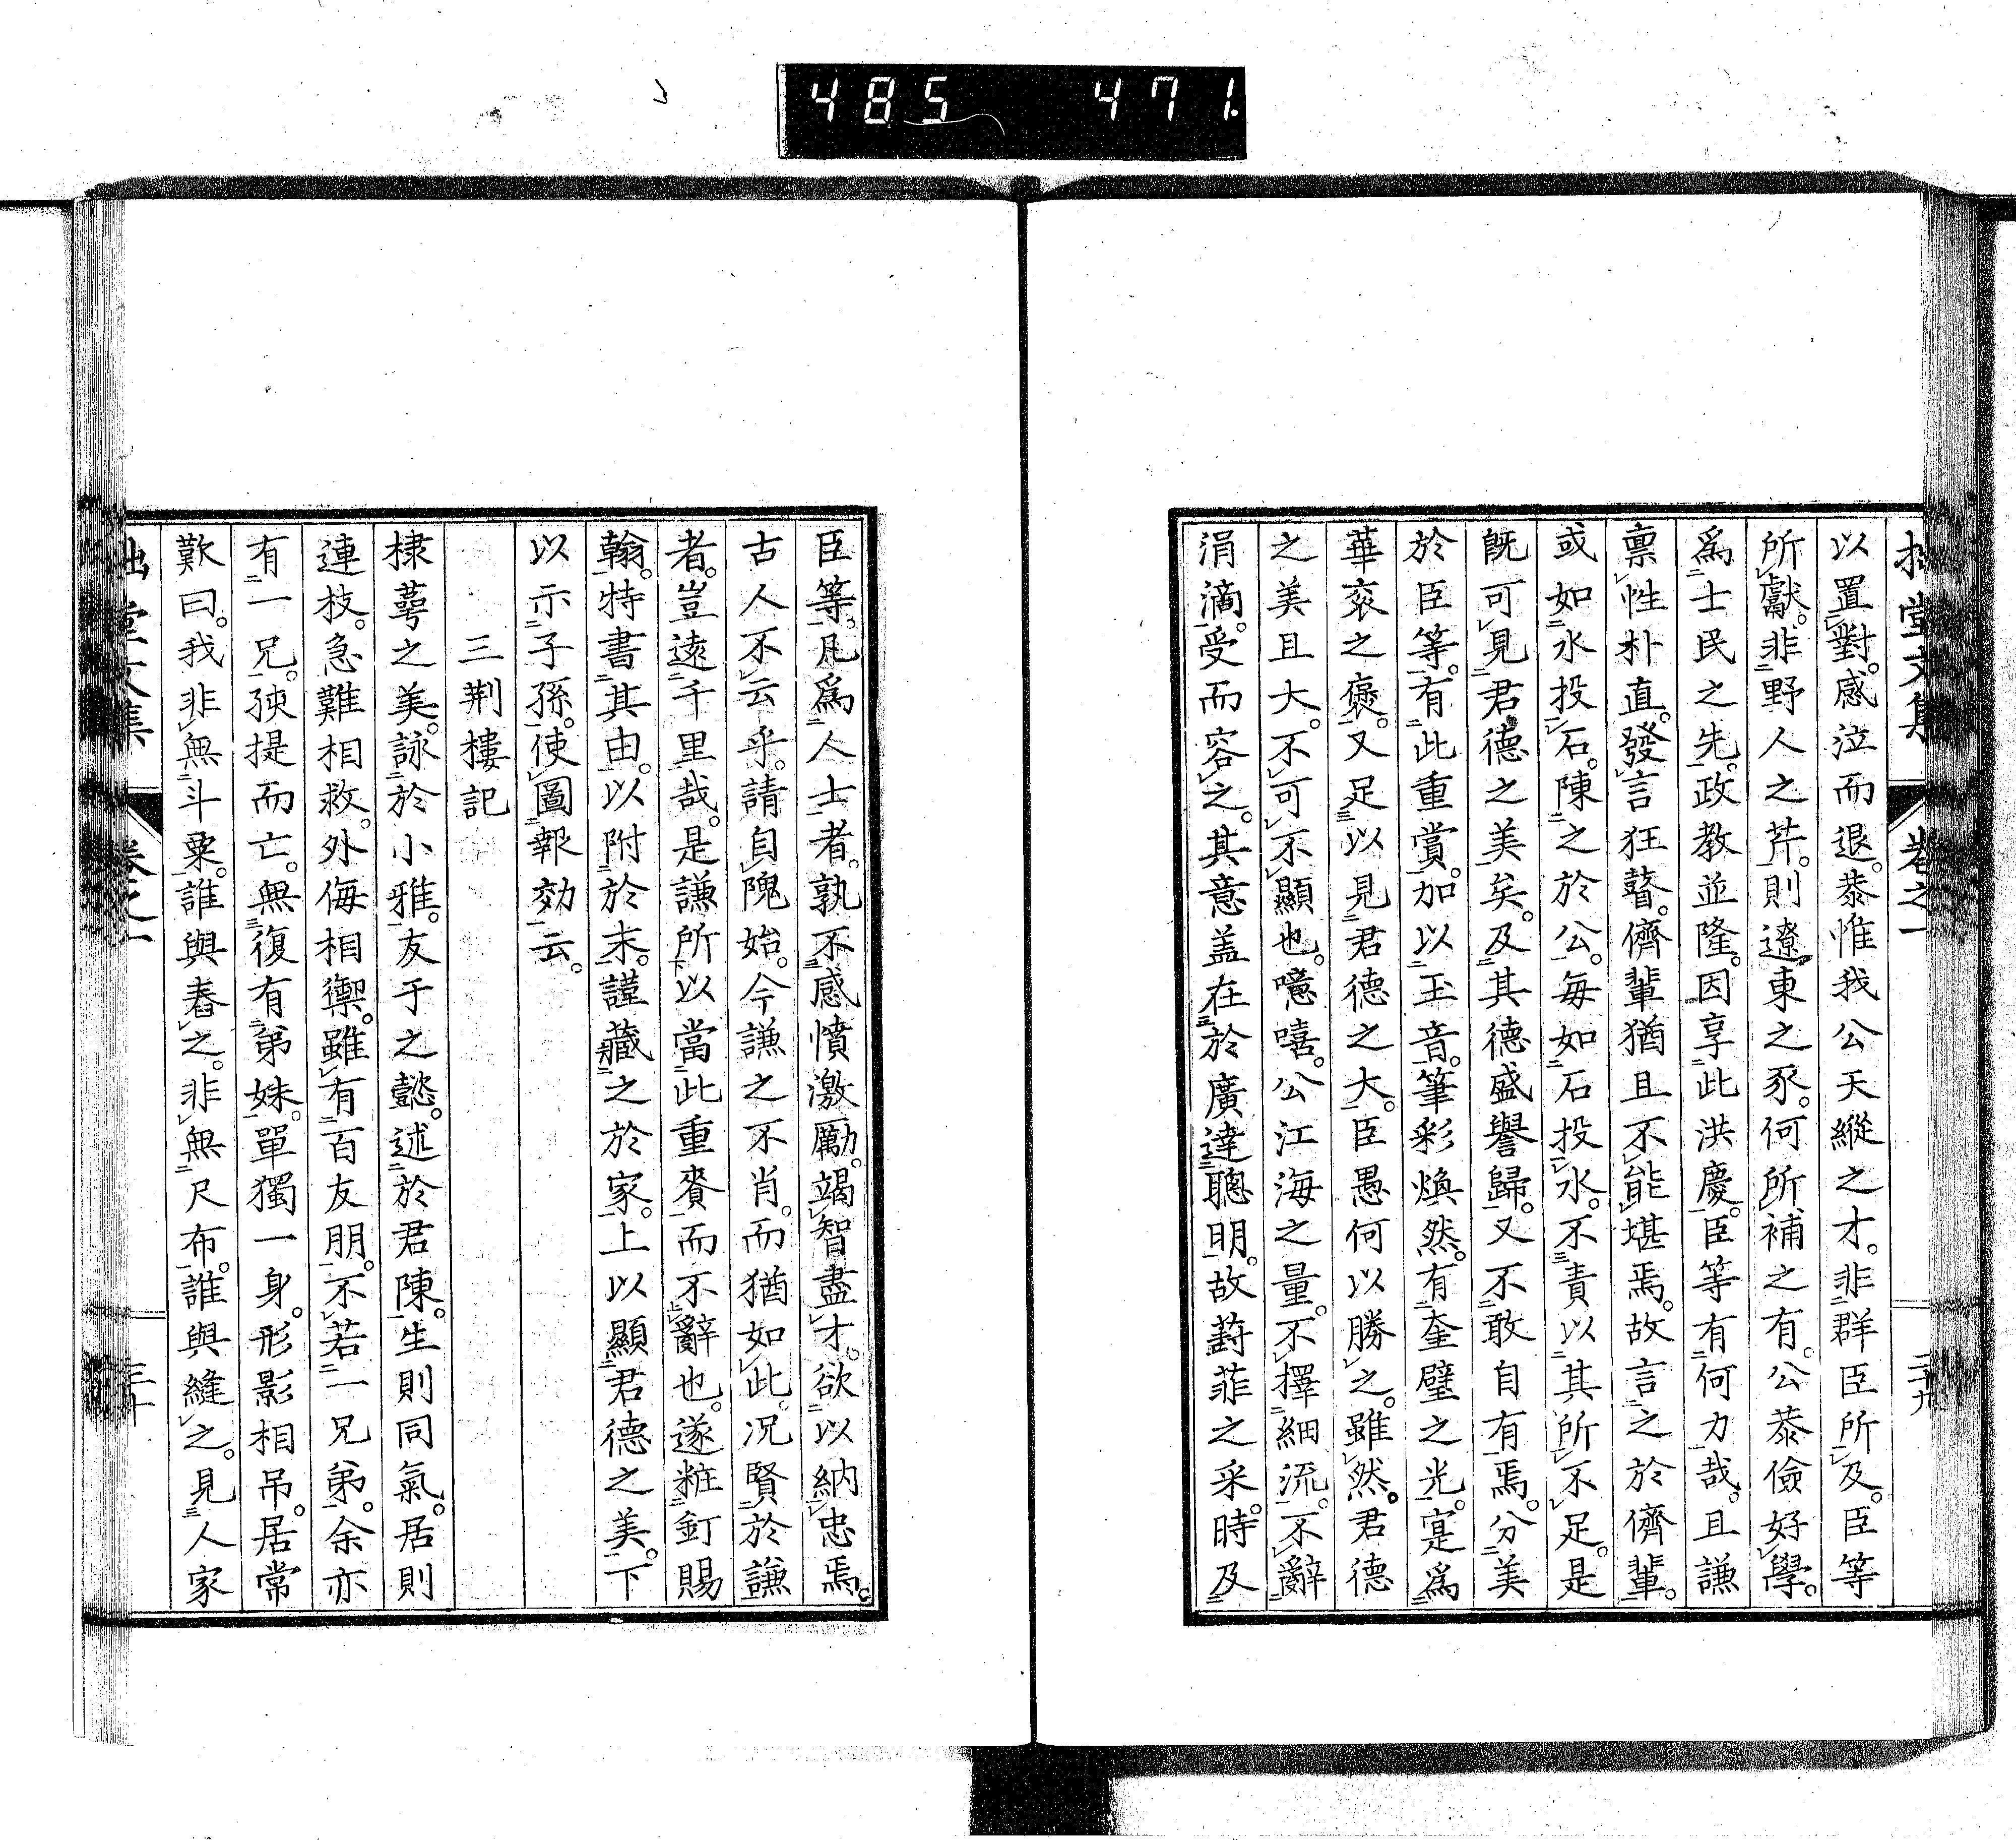 485 471
拙堂文集 卷之一 二十九
以置對。感泣而退。恭惟我公天縱之才。非群臣所及。臣等
所獻。非野人之芹。則遼東之豕。何所補之有。公恭儉好學。
爲士民之先。政教並隆。因享此洪慶。臣等有何力哉。且謙
禀性朴直。發言狂瞽。儕輩猶且不能堪焉。故言之於儕輩。
或如水投石。陳之於公。每如石投水。不責以其所不足。是
既可見君德之美矣。及其德盛譽歸。又不敢自有焉。分美
於臣等。有此重賞。加以玉音。筆彩煥然。有奎璧之光。寔爲
華衮之褒。又足以見君德之大。臣愚何以勝之。雖然。君德
之美且大。不可不顯也。噫嘻。公江海之量。不擇細流。不辭
涓滴。受而容之。其意盖在於廣達聰明。故葑菲之采。時及
臣等。凡爲人士者。孰不感憤激勵。竭智盡才。欲以納忠焉。
古人不云乎。請自隗始。今謙之不肖。而猶如此。况賢於謙
者。豈遠千里哉。是謙所以當此重賚而不辭也。遂粧釘賜
翰。特書其由。以附於末。謹藏之於家。上以顯君德之美。下
以示子孫。使圖報効云。
三荆樓記
棣萼之美。詠於小雅。友于之懿。述於君陳。生則同氣。居則
連枝。急難相救。外侮相禦。雖有百友朋。不若一兄弟。余亦
有一兄。孩提而亡。無復有弟妹。單獨一身。形影相吊。居常
歎曰。我非無斗粟。誰與舂之。非無尺布。誰與縫之。見人家
拙堂文集 卷之一 三十